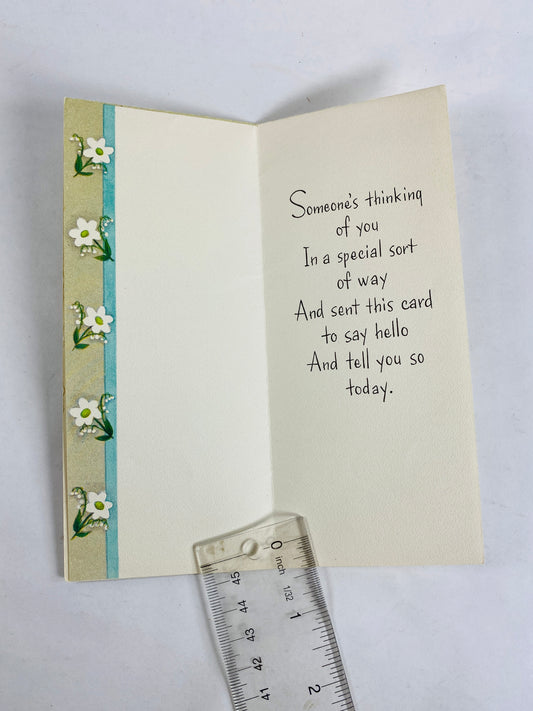 Someone's thinking
of you
In a special sort
of way
And sent this card
to say hello
And tell you so
today.
0
inch
1/32
1
2
45
44
43
42
41